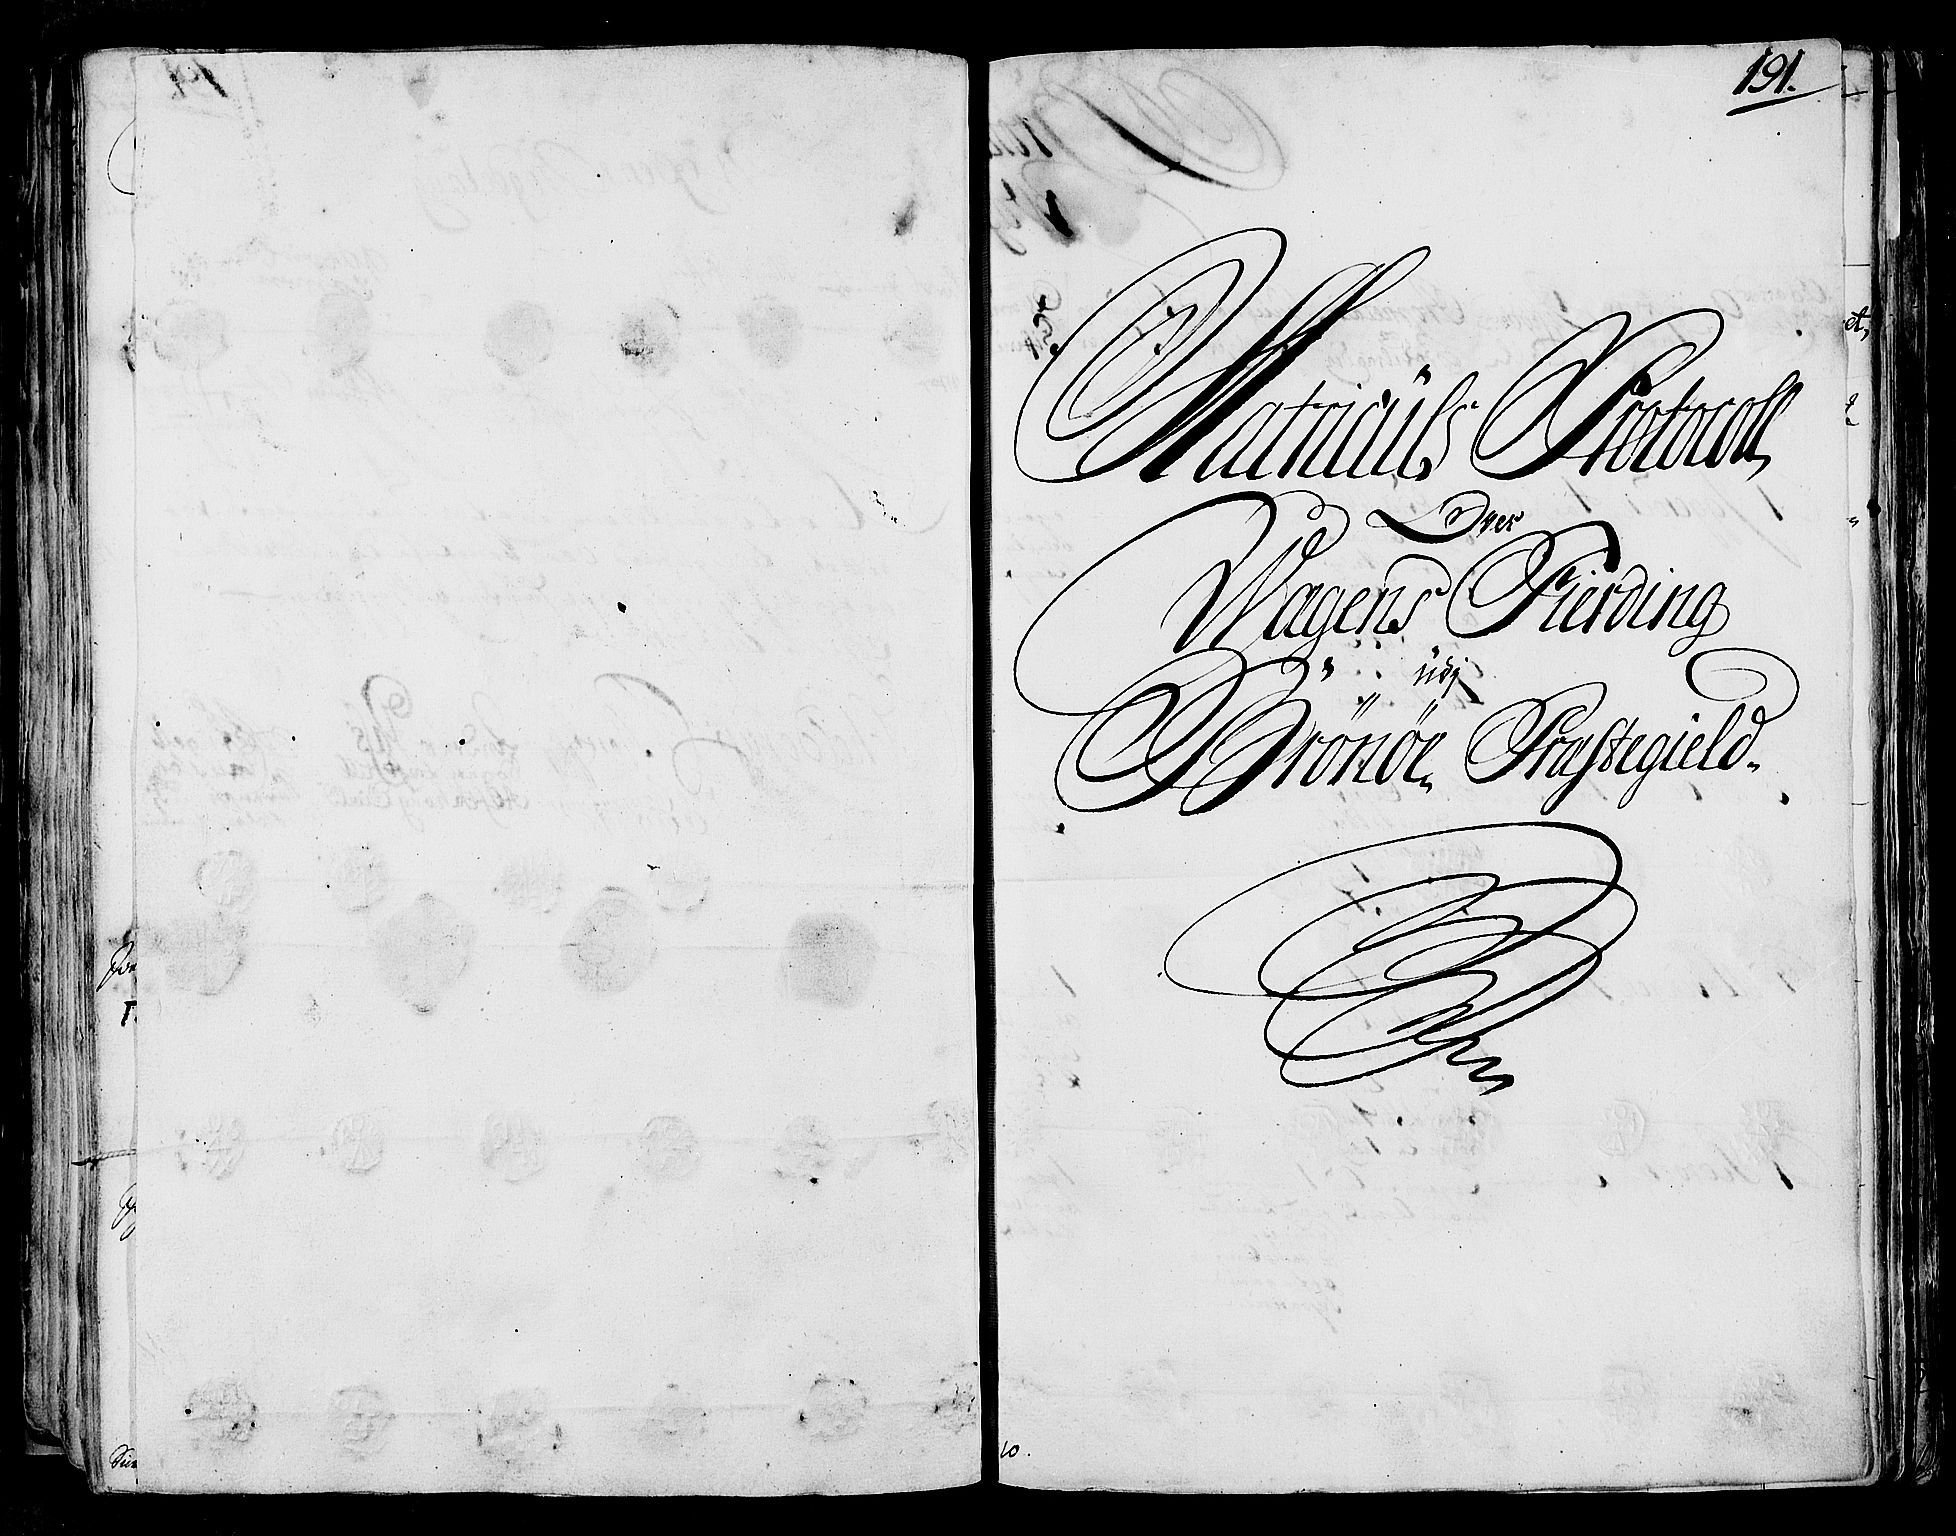 191.
Matriculs Protocoll
Over
Wagens Fierding
üdj
Brönöe Præstegield.
10.